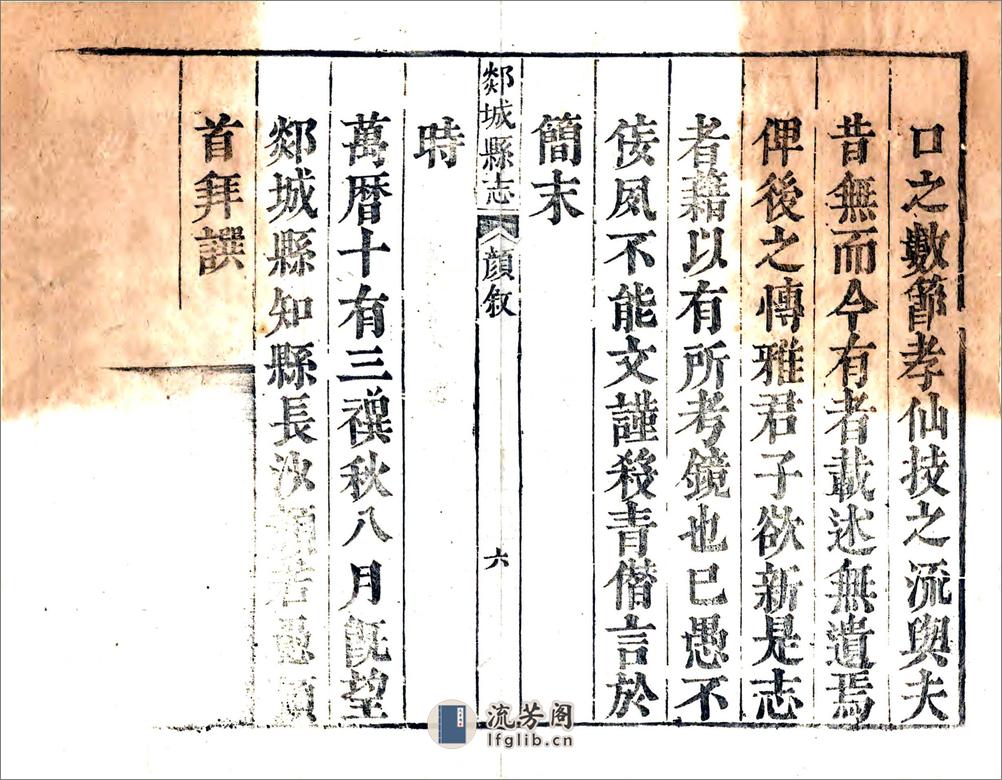 口之數節孝仙技之流與夫
昔無而今有者載述無遺焉
俾後之博雅君子欲新是志
者藉以有所考鏡也已愚不
佞夙不能文謹殺青僭言於
簡末
郯城縣志
顔叙
六
時
萬曆十有三禩秋八月既望
郯城縣知縣長沙顔若愚頓
首拜譔
流芳阁
lfglib.cn